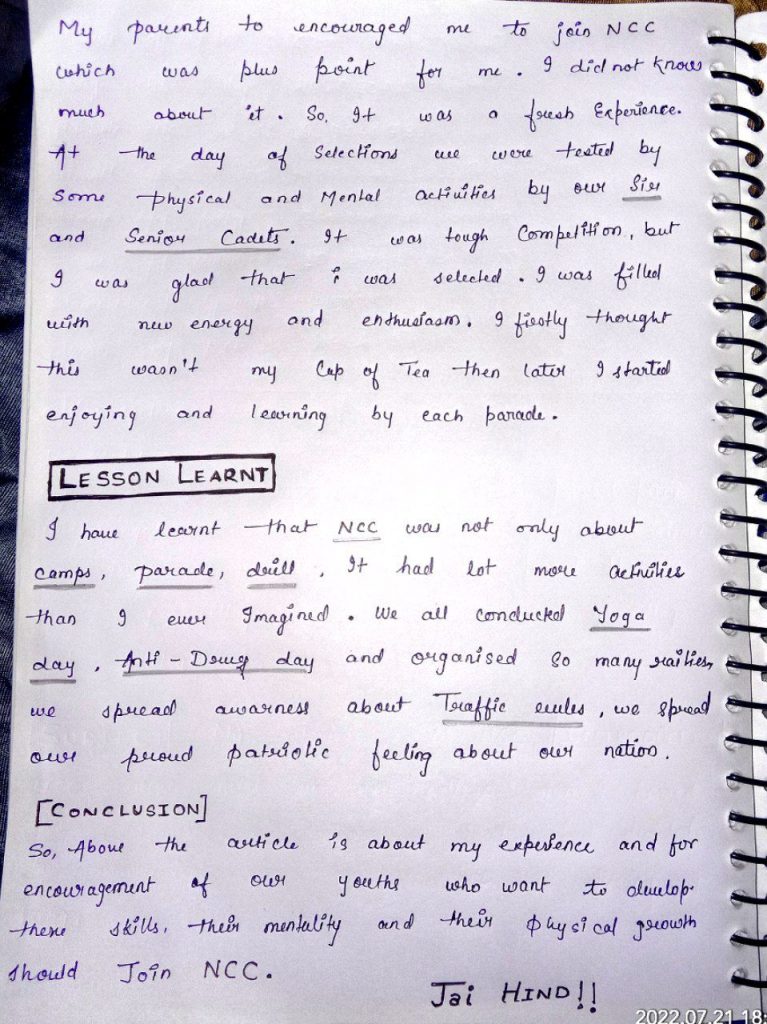 My parents to encouraged me to join NCC
which was plus point for me. I did not know
much about it. So, It was a fresh Experience.
At the day of Selections we were tested by
Some physical and Mental activities by our Sir
and Senior Cadets. It was tough Competition, but
I was glad that i was selected. I was filled
with new energy and enthusiasm. I firstly thought
this wasn't my Cup of Tea then later I started
enjoying and learning by each parade.
LESSON LEARNT
I have learnt that NCC was not only about
camps, parade, drill. It had lot more activities
than I ever Imagined. We all conducted Yoga
day, Anti-Drug day and organised so many railies,
we spread awarness about Traffic rules, we spread
our proud patriotic feeling about our nation.
[CONCLUSION]
So, Above the article is about my experience and for
encouragement of our youths who want to develop
there skills, their mentality and their physical growth
should Join NCC.
Jai HIND!!
2022.07.21 18: